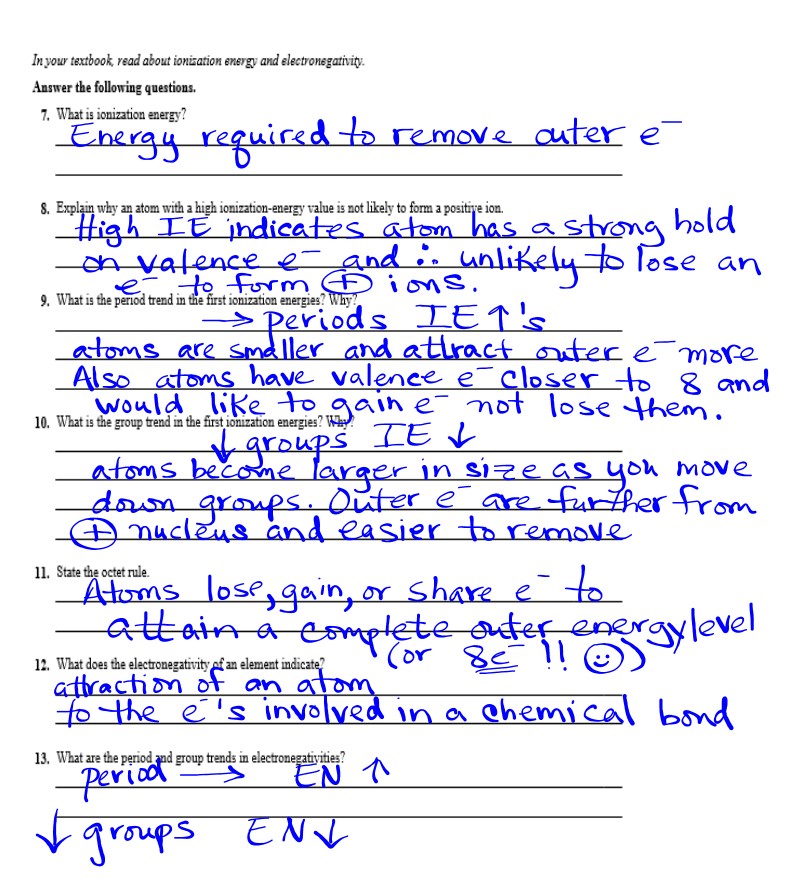 In your textbook, read about ionization energy and electronegativity.
Answer the following questions.
7. What is ionization energy?
Energy required to remove outer e⁻
8. Explain why an atom with a high ionization-energy value is not likely to form a positive ion.
High IE indicates atom has a strong hold
on valence e⁻ and ∴ unlikely to lose an
e⁻ to form ⊕ ions.
9. What is the period trend in the first ionization energies? Why?
→ periods IE ↑'s
atoms are smaller and attract outer e⁻ more
Also atoms have valence e⁻ closer to 8 and
would like to gain e⁻ not lose them.
10. What is the group trend in the first ionization energies? Why?
↓ groups IE ↓
atoms become larger in size as you move
down groups. Outer e⁻ are further from
⊕ nucleus and easier to remove
11. State the octet rule.
Atoms lose, gain, or share e⁻ to
attain a complete outer energy level
(or 8e⁻ !! ☺)
12. What does the electronegativity of an element indicate?
attraction of an atom
to the e⁻'s involved in a chemical bond
13. What are the period and group trends in electronegativities?
period → EN ↑
↓ groups EN ↓